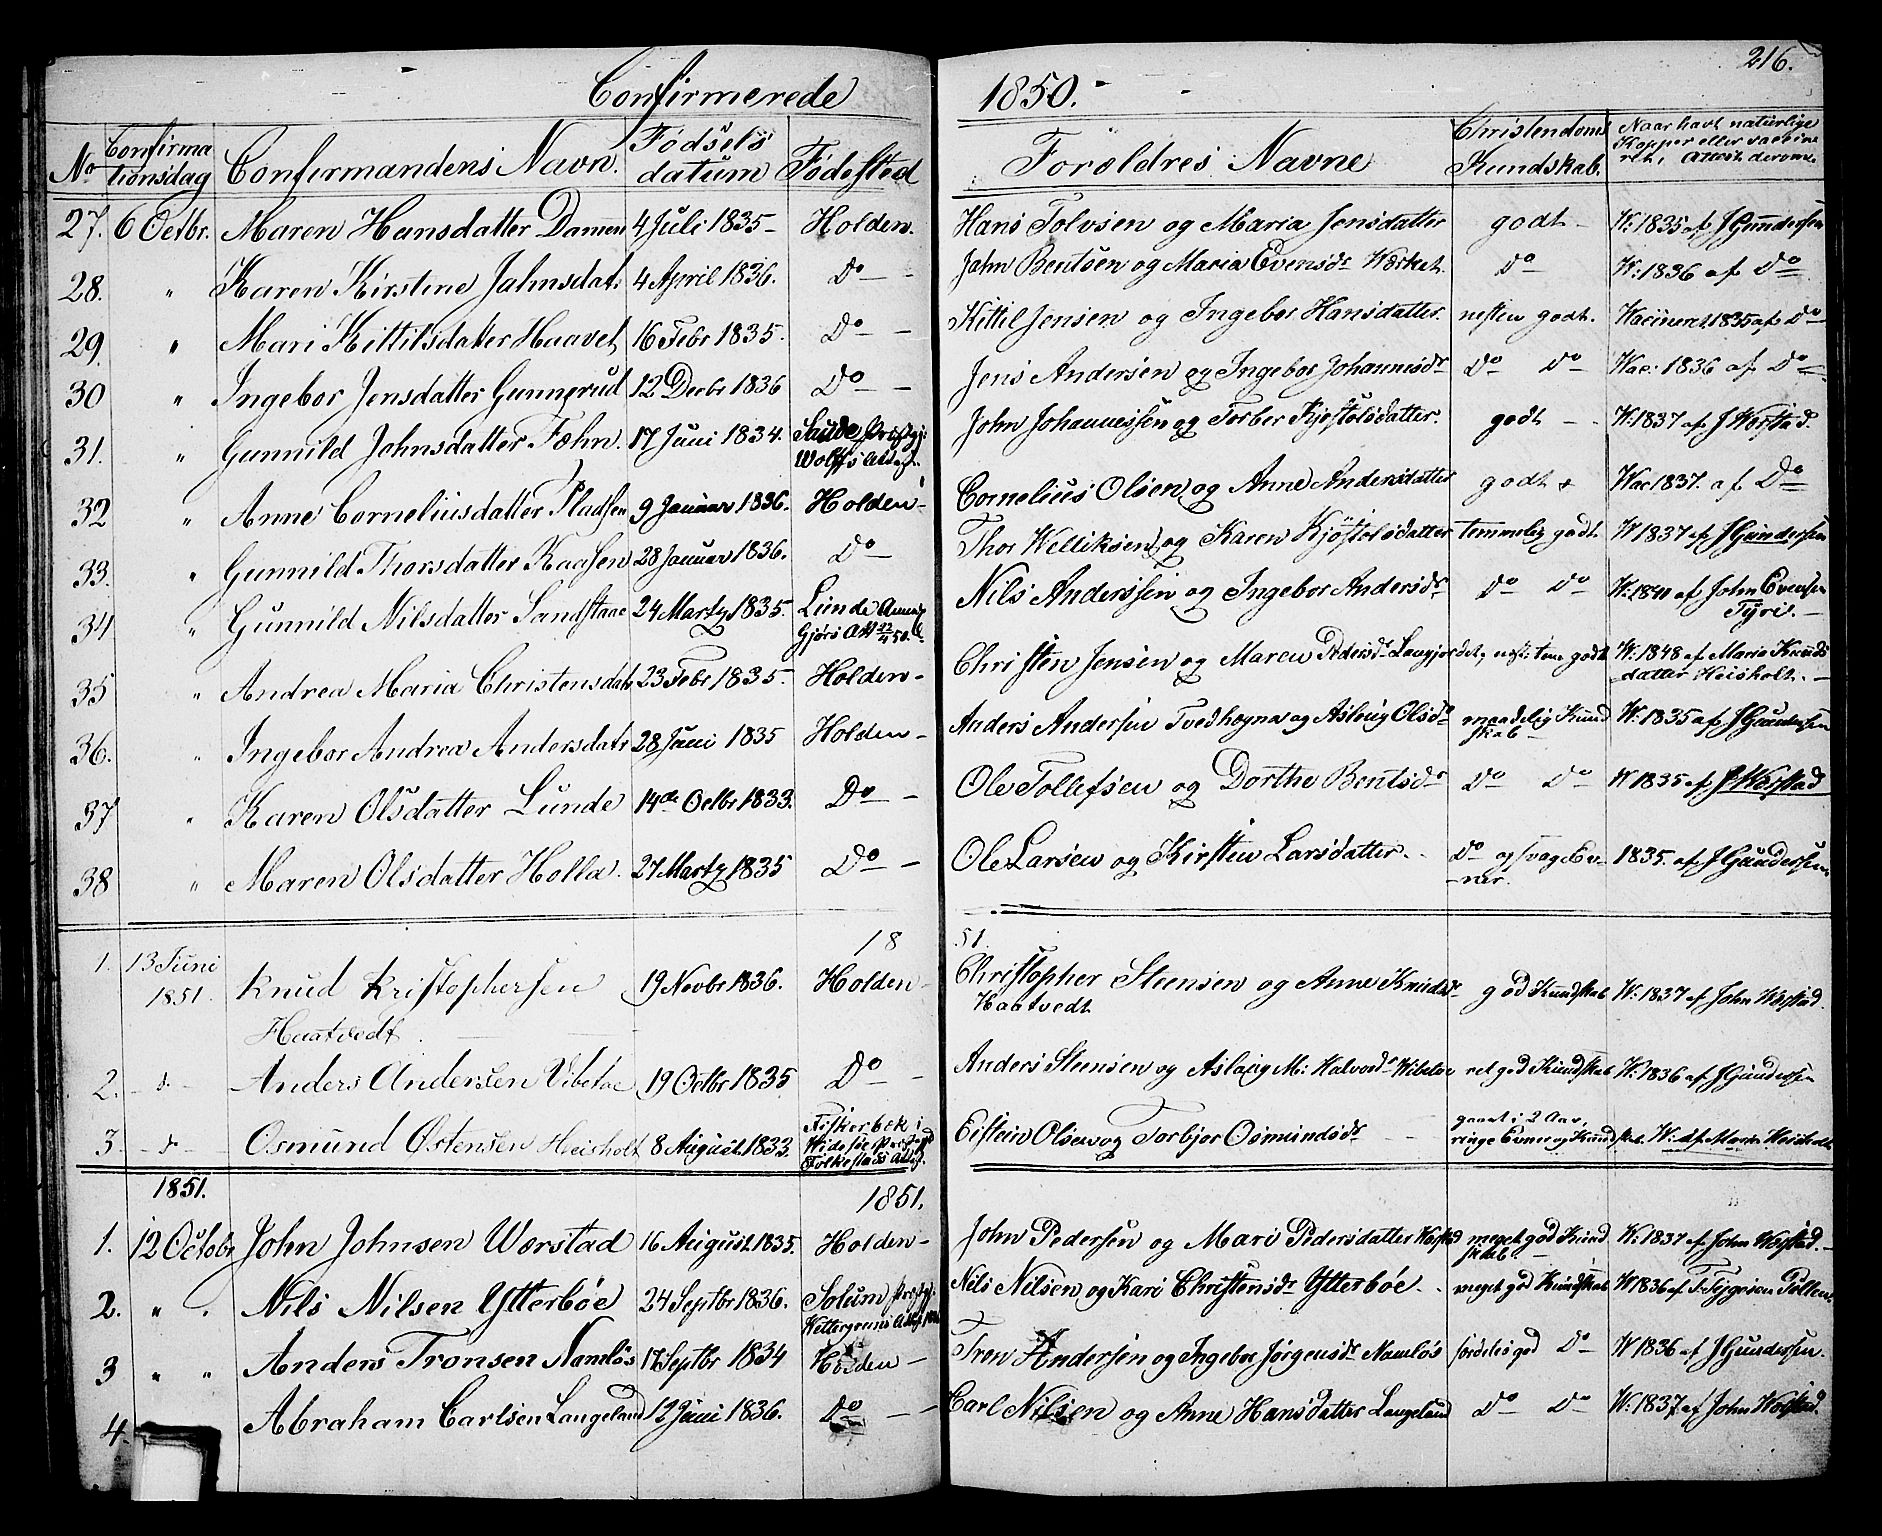 216.
Confirmerede 1850.
No Confirmationsdag Confirmandens Navn. Fødsels datum Fødested Forældres Navne Christendoms Kundskab. Naar havt naturlige Kopper eller vaccineret, Attest derom.
27. 6 Octbr. Maren Hansdatter Dammen 4 Juli 1835 - Holden. Hans Tolvsen og Maria Jensdatter godt - W: 1835 af J Gundersen
28. " Karen Kirstine Jahnsdatr 4 April 1836. Do - Jahn Bentsen og Maria Evensdr Værket. Do W: 1836 af Do
29. " Mari Kittilsdatter Haavet 16 Febr 1835. Do - Kittil Jensen og Ingebor Hansdatter. nesten godt. Wacineret 1835 af Do -
30 " Ingebor Jensdatter Gunnerud 12 Decbr 1836 Do - Jens Andersen og Ingebor Johannisdr Do Do Wac: 1836 af Do -
31. " Gunnild Johnsdatter Fæhn. 17 Juni 1834. Saude Prstgj: Wolffs Attest. John Johannessen og Torber Kjøstolsdatter. godt - W: 1837 af J Werstad.
32 " Anne Corneliusdatter Pladsen 9 Januar 1836. Holden - Cornelius Olsen og Anne Andersdatter godt Wac 1837. af Do
33. " Gunnild Thorsdatter Kaasen 28 Januar 1836. Do - Thor Welliksen og Karen Kjøstolsdatter temmelig godt W 1837 af J Gundersen
34 " Gunnild Nilsdatter Sandstaae 24 Marty 1835. Lunde Annex Gjørs Att 22/4 50. Nils Anderssen og Ingebor Andersdr Do Do W: 1841 af John Evensen Tyri. -
35 " Andrea Maria Christensdatr 23 Febr 1835. Holden - Christen Jensen og Maren Pedersdr Langjordet, nest: tem godt W: 1848 af Maria Knudsdatter Heisholt. -
36. " Ingebor Andrea Andersdatr 28 Juni 1835 Holden - Anders Andersen Tvedhægna og Aslaug Olsdr maadelig Kundskab - W: 1835 af J Gundersen
37 " Karen Olsdatter Lunde 14de Octbr 1833. Do - Ole Tollefsen og Dorthe Bentsdr Do Do W 1835 af J Werstad
38 " Maren Olsdatter Holla. 27 Marty 1835 Do - Ole Larsen og Kirsten Larsdatter. Do og svage Evner. 1835. af J Gundersen
1851.
1. 13 Juni 1851. Knud Kristophersen Haatvedt. 19 Novbr 1836. Holden - Christopher Steensen og Anne Knudsdr Haatvedt god Kundskab W: 1837 af John Werstad.
2. d. Anders Andersen Vibetoe 19 Octbr 1835 Do - Anders Steensen og Aslaug M: Halvorsdr Wibetoe ret god Kundskab W: 1836 af J Gundersen
3. d. Osmund Østensen Heisholt 8 August 1833. Fiskerbæk i Hvidesøe Prstgjd Folkestads Attest. Eistein Olsen og Torbjor Osmundsdr gaaet i 2 Aar, ringe Evner og Kundskab. W: af Maria Heisholt
1851. 1851.
1. 12 Octobr John Johnsen Værstad 16 August 1835. Holden - John Pedersen og Mari Pedersdatter Werstad meget god Kundskab. - W: 1837 af John Werstad. -
2. " Nils Nilsen Ytterbøe 24 Septbr 1836. Solum Prstgj: Wettergrens Attest Nils Nilsen og Kari Christensdr Ytterbøe. meget god Kundskab W 1836 af
3 " " Anders Tronsen Namløs 17 Septbr 1834 Holden - Tron Andersen og Ingebor Jørgensdr Namløs særdeles god Do W 1836 af J Gundersen.
4. Abraham Carlsen Langeland 12 Juni 1836. Do - Carl Nilsen og Anne Hansdatter Langeland Do Do W: 1837 af John Werstad.